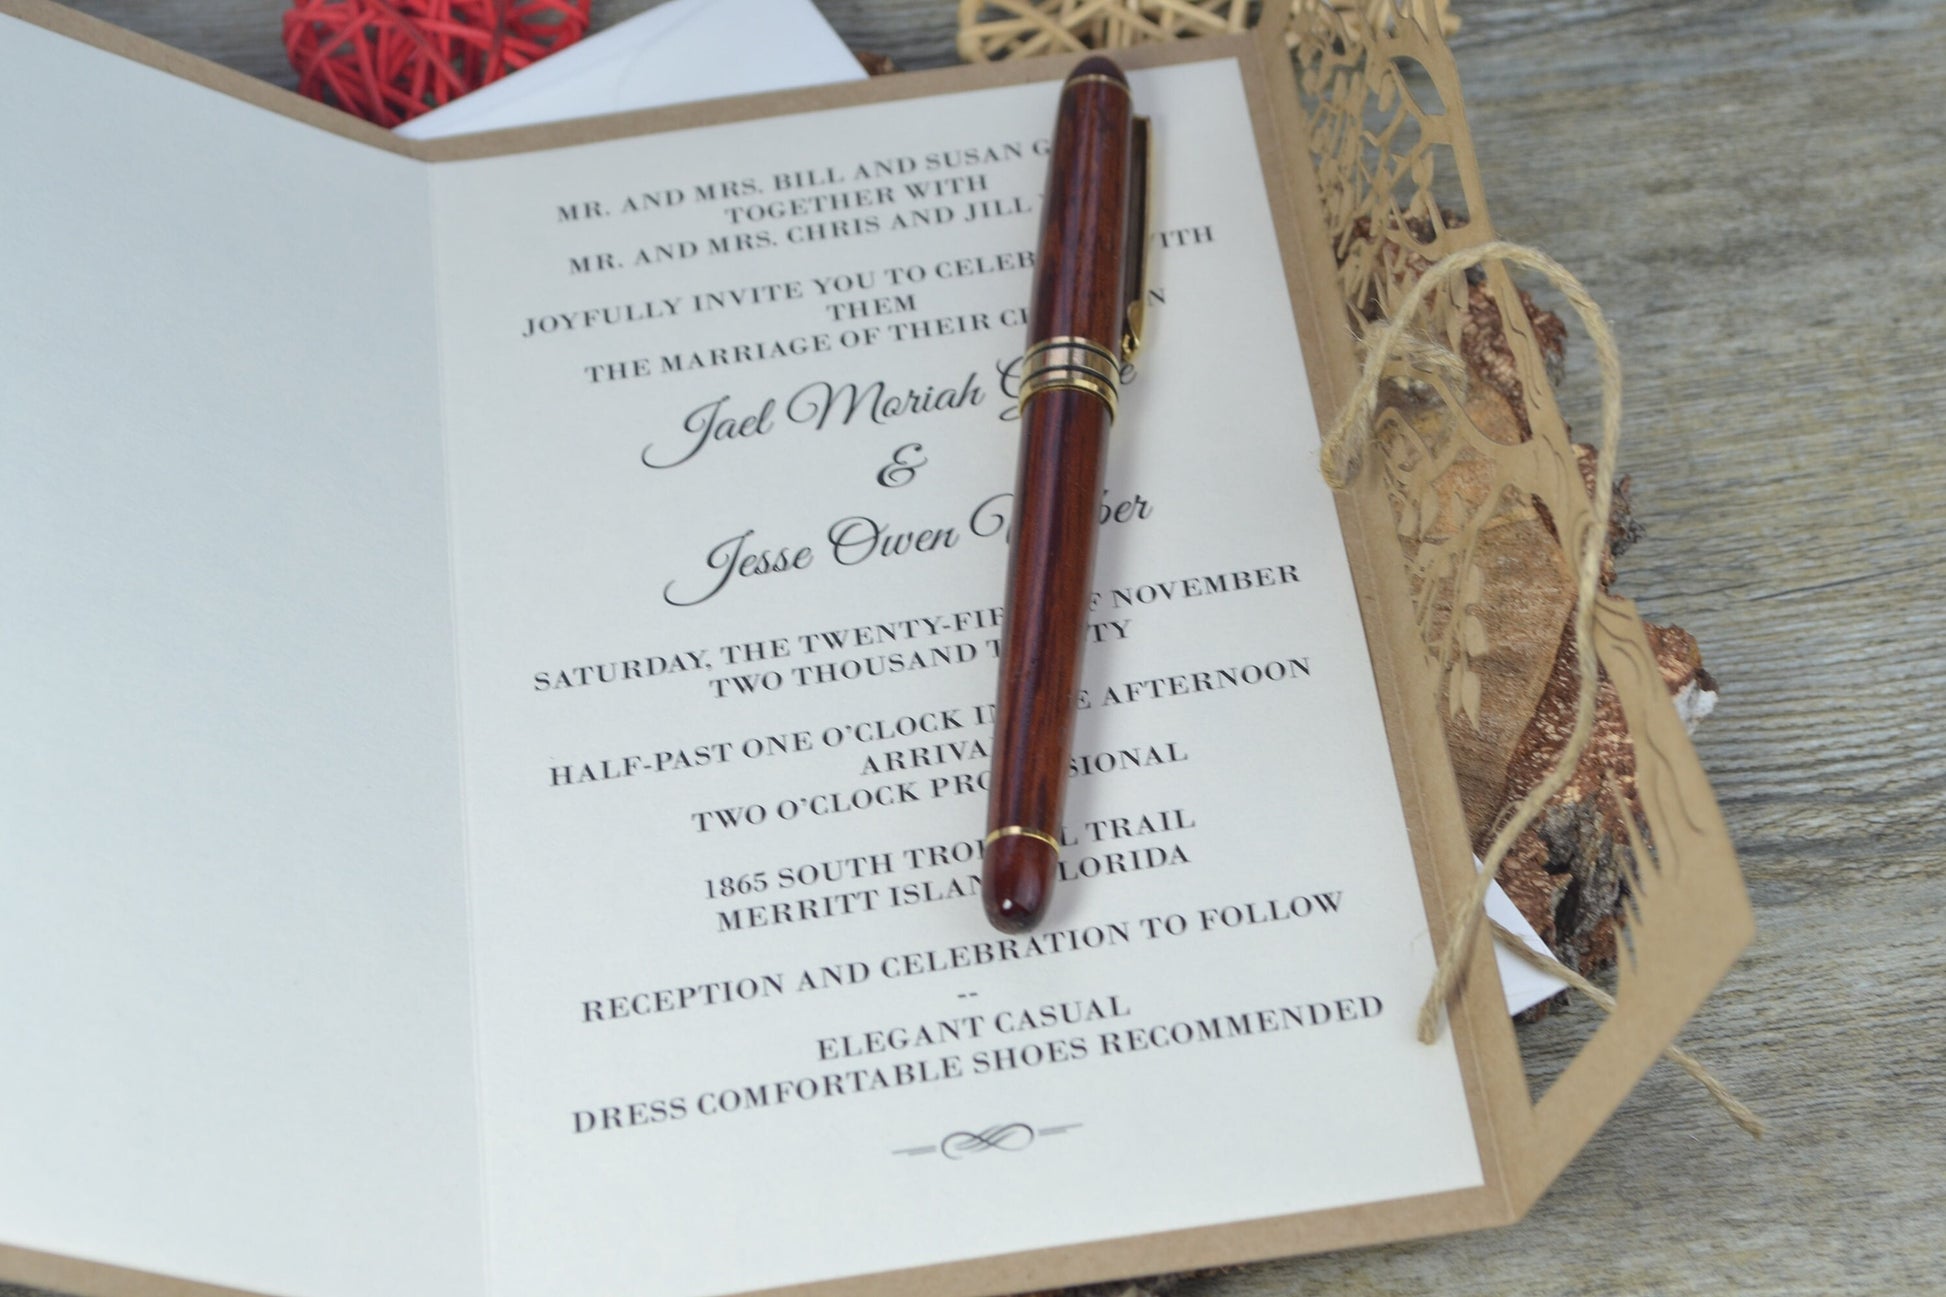 MR. AND MRS. BILL AND SUSAN
TOGETHER WITH
MR. AND MRS. CHRIS AND JILL
JOYFULLY INVITE YOU TO WITH
THEM
THE MARRIAGE OF THEIR
Jael Moriah
&
Jesse Owen
SATURDAY, THE OF NOVEMBER
TWO THOUSAND
HALF-PAST ONE O'CLOCK IN THE AFTERNOON
ARRIVAL
TWO O'CLOCK PROCESSIONAL
1865 SOUTH TROPICAL TRAIL
MERRITT ISLAND, FLORIDA
RECEPTION AND CELEBRATION TO FOLLOW
--
ELEGANT CASUAL
DRESS COMFORTABLE SHOES RECOMMENDED